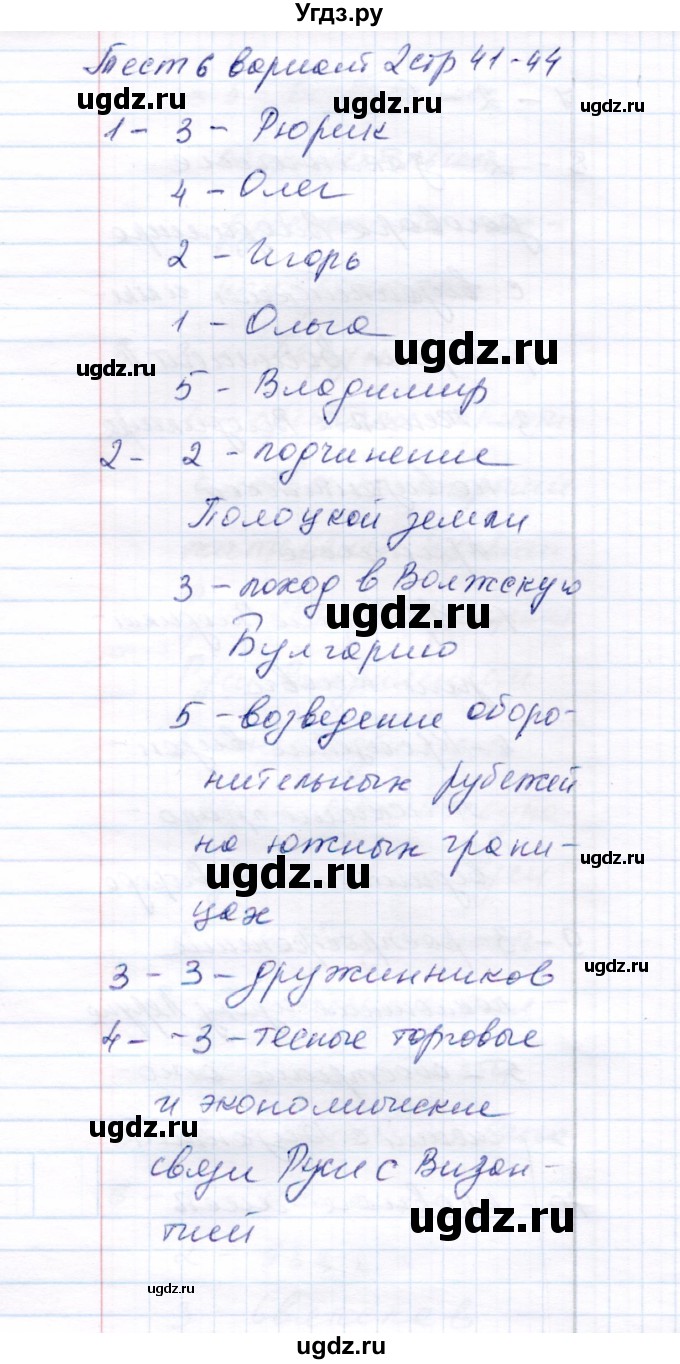 Угдз.ру
Тест 6 вариант 2 стр 41-44
ugdz.ru
ugdz.ru
1 - 3 - Рюрик
4 - Олег
2 - Игорь
1 - Ольга
ugdz.ru
ugdz.ru
5 - Владимир
2 - 2 - подчинение
Полоцкой земли
3 - поход в Волжскую
ugdz.ru
Булгарию
5 - возведение оборо-
нительных рубежей
на южных грани-
ugdz.ru
ugdz.ru
цах
3 - 3 - дружинников
ugdz.ru
4 - - 3 - тесные торговые
и экономические
ugdz.ru
связи Руси с Визан-
тией
ugdz.ru
ugdz.ru
ugdz.ru